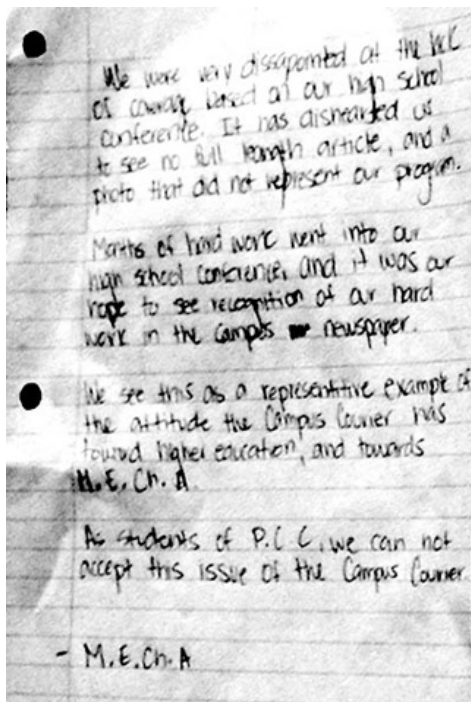 We were very dissapointed at the lack
of coverage based on our high school
conference. It has dishearted us
to see no full length article, and a
photo that did not represent our program.
Months of hard work went into our
high school conference, and it was our
hope to see recognition of our hard
work in the campus newspaper.
We see this as a representitive example of
the attitude the Campus Courier has
toward higher education, and towards
M.E.Ch.A
As students of P.C.C, we can not
accept this issue of the Campus Courier.
- M.E.Ch.A